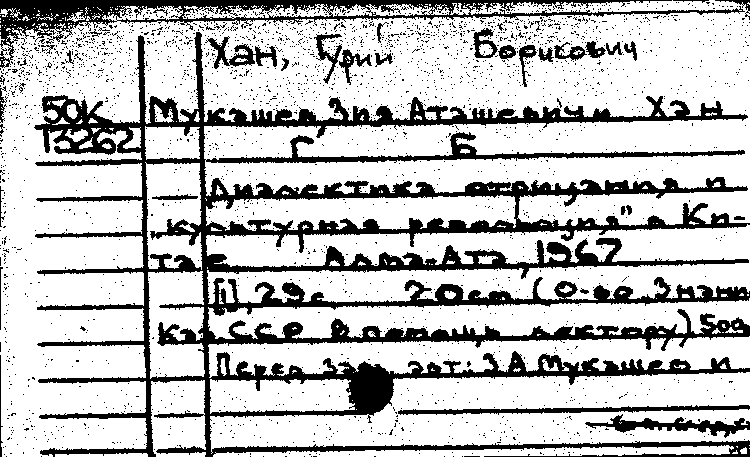 Хан, Гурий Борисович
50К Мукашев, Зия Аташевич и Хан
13262 Г Б
Диалектика отрицания и
„культурная революция" в Ки-
тае Алма-Ата, 1967
[1], 29с 20см (О-во Знани
КазССР В помощь лектору) 500
Перед загл авт: З А Мукашев и